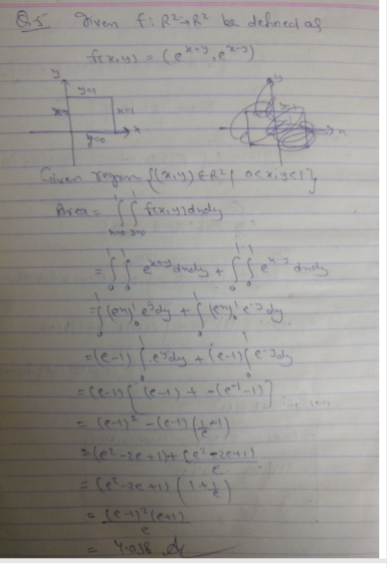 Q.5 Given f: R²→R² be defined as
f(x,y) = (e^{x+y}, e^{x-y})
y
y=1
x=1
x
y=0
y
x
Given region {(x,y) ∈ R² | 0<x,y<1}
Area = ∫∫ f(x,y) dxdy
= ∫₀¹∫₀¹ e^{x+y} dxdy + ∫₀¹∫₀¹ e^{x-y} dxdy
= ∫₀¹ (e^x)₀¹ e^y dy + ∫₀¹ (e^x)₀¹ e^{-y} dy
= (e-1) ∫₀¹ e^y dy + (e-1) ∫₀¹ e^{-y} dy
= (e-1) [(e-1) + -(e^{-1}-1)]
= (e-1)² - (e-1)(1/e - 1)
= (e²-2e+1) + (e²-2e+1)/e
= (e²-2e+1) (1+1/e)
= (e-1)²(e+1)/e
= 4.038